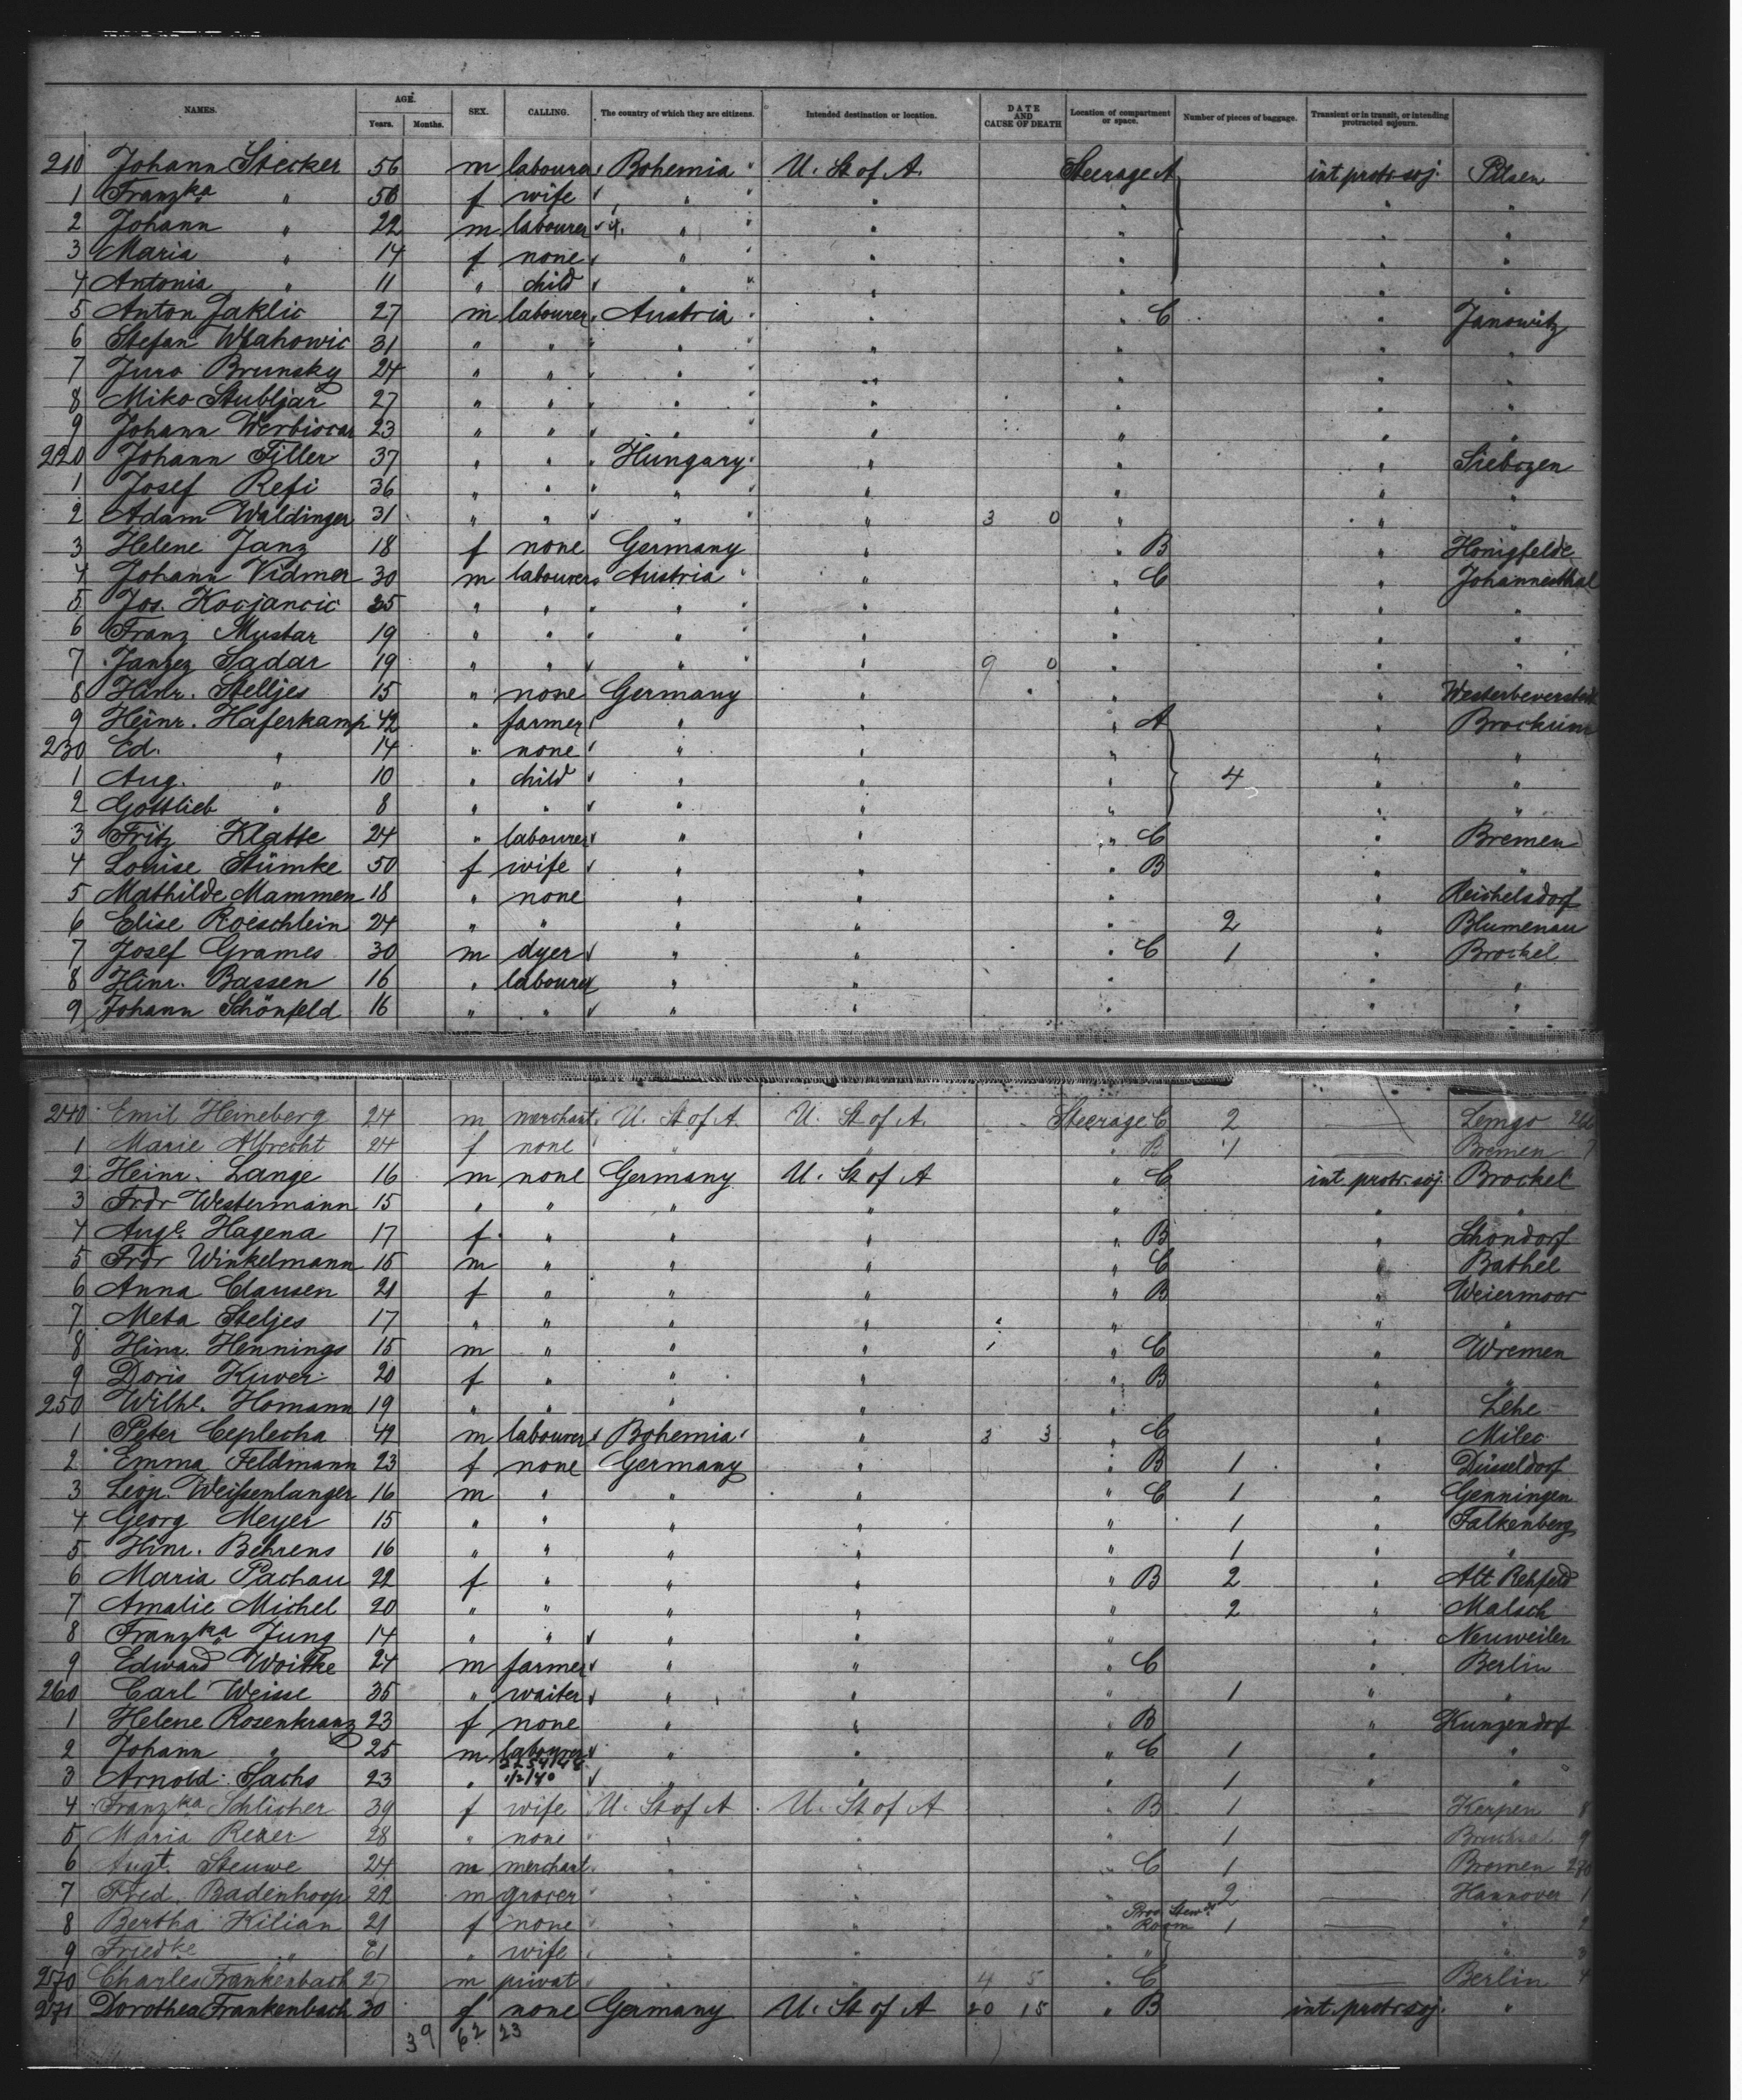 NAMES. AGE. Years. Months. SEX. CALLING. The country of which they are citizens. Intended destination or location. DATE AND CAUSE OF DEATH Location of compartment or space. Number of pieces of baggage. Transient or in transit, or intending protracted sojourn.
210 Johann Stecker 56 m labourer Bohemia U. St of A. Steerage A int. protr. soj. Pilsen
1 Franzka " 56 f wife " " " " "
2 Johann " 22 m labourer " " " " "
3 Maria " 14 f none " " " " "
4 Antonia " 11 " child " " " " "
5 Anton Jaklic 27 m labourer Austria " " C " Janowitz
6 Stefan Wlahowic 31 " " " " " " "
7 Juro Brunsky 24 " " " " " " "
8 Miko Stubljar 27 " " " " " " "
9 Johann 23 " " " " " " "
220 Johann Filler 37 " " Hungary " " "
1 Josef Refi 36 " " " " " " "
2 Adam Waldinger 31 " " " " 3 0 " " "
3 Helene Janz 18 f none Germany " " B " Honigfelde
4 Johann Vidmer 30 m labourer Austria " " C " Johannesthal
5 Jos. Kocjancic 25 " " " " " " "
6 Franz Mustar 19 " " " " " " "
7 Janzez Sadar 19 " " " " 9 0 " " "
8 Hinr. Stelljes 15 " none Germany " " "
9 Heinr. Haferkamp 42 " farmer " " " A "
230 Ed. " 14 " none " " " " "
1 Aug. " 10 " child " " " 4 " "
2 Gottlieb " 8 " " " " " " "
3 Fritz Klatte 24 " labourer " " " C " Bremen
4 Louise Stümke 50 f wife " " " B " "
5 Mathilde Mammen 18 " none " " " " Reichelsdorf
6 Elise Roeschlein 24 " " " " " 2 " Blumenau
7 Josef Grames 30 m dyer " " " C 1 " Brockel
8 Hinr. Bassen 16 " labourer " " " " "
9 Johann Schönfeld 16 " " " " " " "
240 Emil Heineberg 24 m merchant U. St of A. U. St of A. Steerage C 2 — Lemgo
1 Marie Albrecht 24 f none " " " B 1 — Bremen 7
2 Heinr. Lange 16 m none Germany U. St of A " C int. protr. soj. Brockel
3 Frdr Westermann 15 " " " " " " "
4 Auge. Hagena 17 f " " " " B " Schondorf
5 Frdr Winkelmann 15 m " " " " C " Bathel
6 Anna Clausen 21 f " " " " B " Weiermoor
7 Meta Steljes 17 " " " " " " "
8 Hinr. Hennings 15 m " " " " C " Wremen
9 Doris Kuver 20 f " " " " B " "
250 Wilhe. Homann 19 " " " " " " Lehe
1 Peter Ceplecha 49 m labourer Bohemia " 3 3 " C " Milec
2 Emma Feldmann 23 f none Germany " " B 1 " Düsseldorf
3 Leop. Weißenlanger 16 m " " " " C 1 " Genningen
4 Georg Meyer 15 " " " " " 1 " Falkenberg
5 Hinr. Behrens 16 " " " " " 1 " "
6 Maria Pachau 22 f " " " " B 2 " Alt Rehfeld
7 Amalie Michel 20 " " " " " 2 " Malsch
8 Franzka Jung 14 " " " " " " Neuweiler
9 Edward Woitke 24 m farmer " " " C " Berlin
260 Carl Weisse 35 " waiter " " " 1 " "
1 Helene Rosenkranz 23 f none " " " B " Kunzendorf
2 Johann " 25 m labourer " " " C 1 " "
3 Arnold Sachs 23 " " " " 1 " "
4 Franzka Schlicher 39 f wife U. St of A. U. St of A " B 1 — Kerpen 8
5 Maria 28 " none " " " 1 — Bruchsal 9
6 Augt. Steuwe 24 m merchant " " " C 1 — Bremen 270
7 Fred. Badenhoop 29 m grocer " " " 2 — Hannover 1
8 Bertha Kilian 21 f none " " " Room 1 — " 2
9 Friedke " 61 " wife " " " " " 3
270 Charles Frankenbach 27 m privat " " 4 5 " C — Berlin 4
271 Dorothea Frankenbach 30 f none Germany U. St of A 20 15 " B int. protr. soj. "
39 62 23